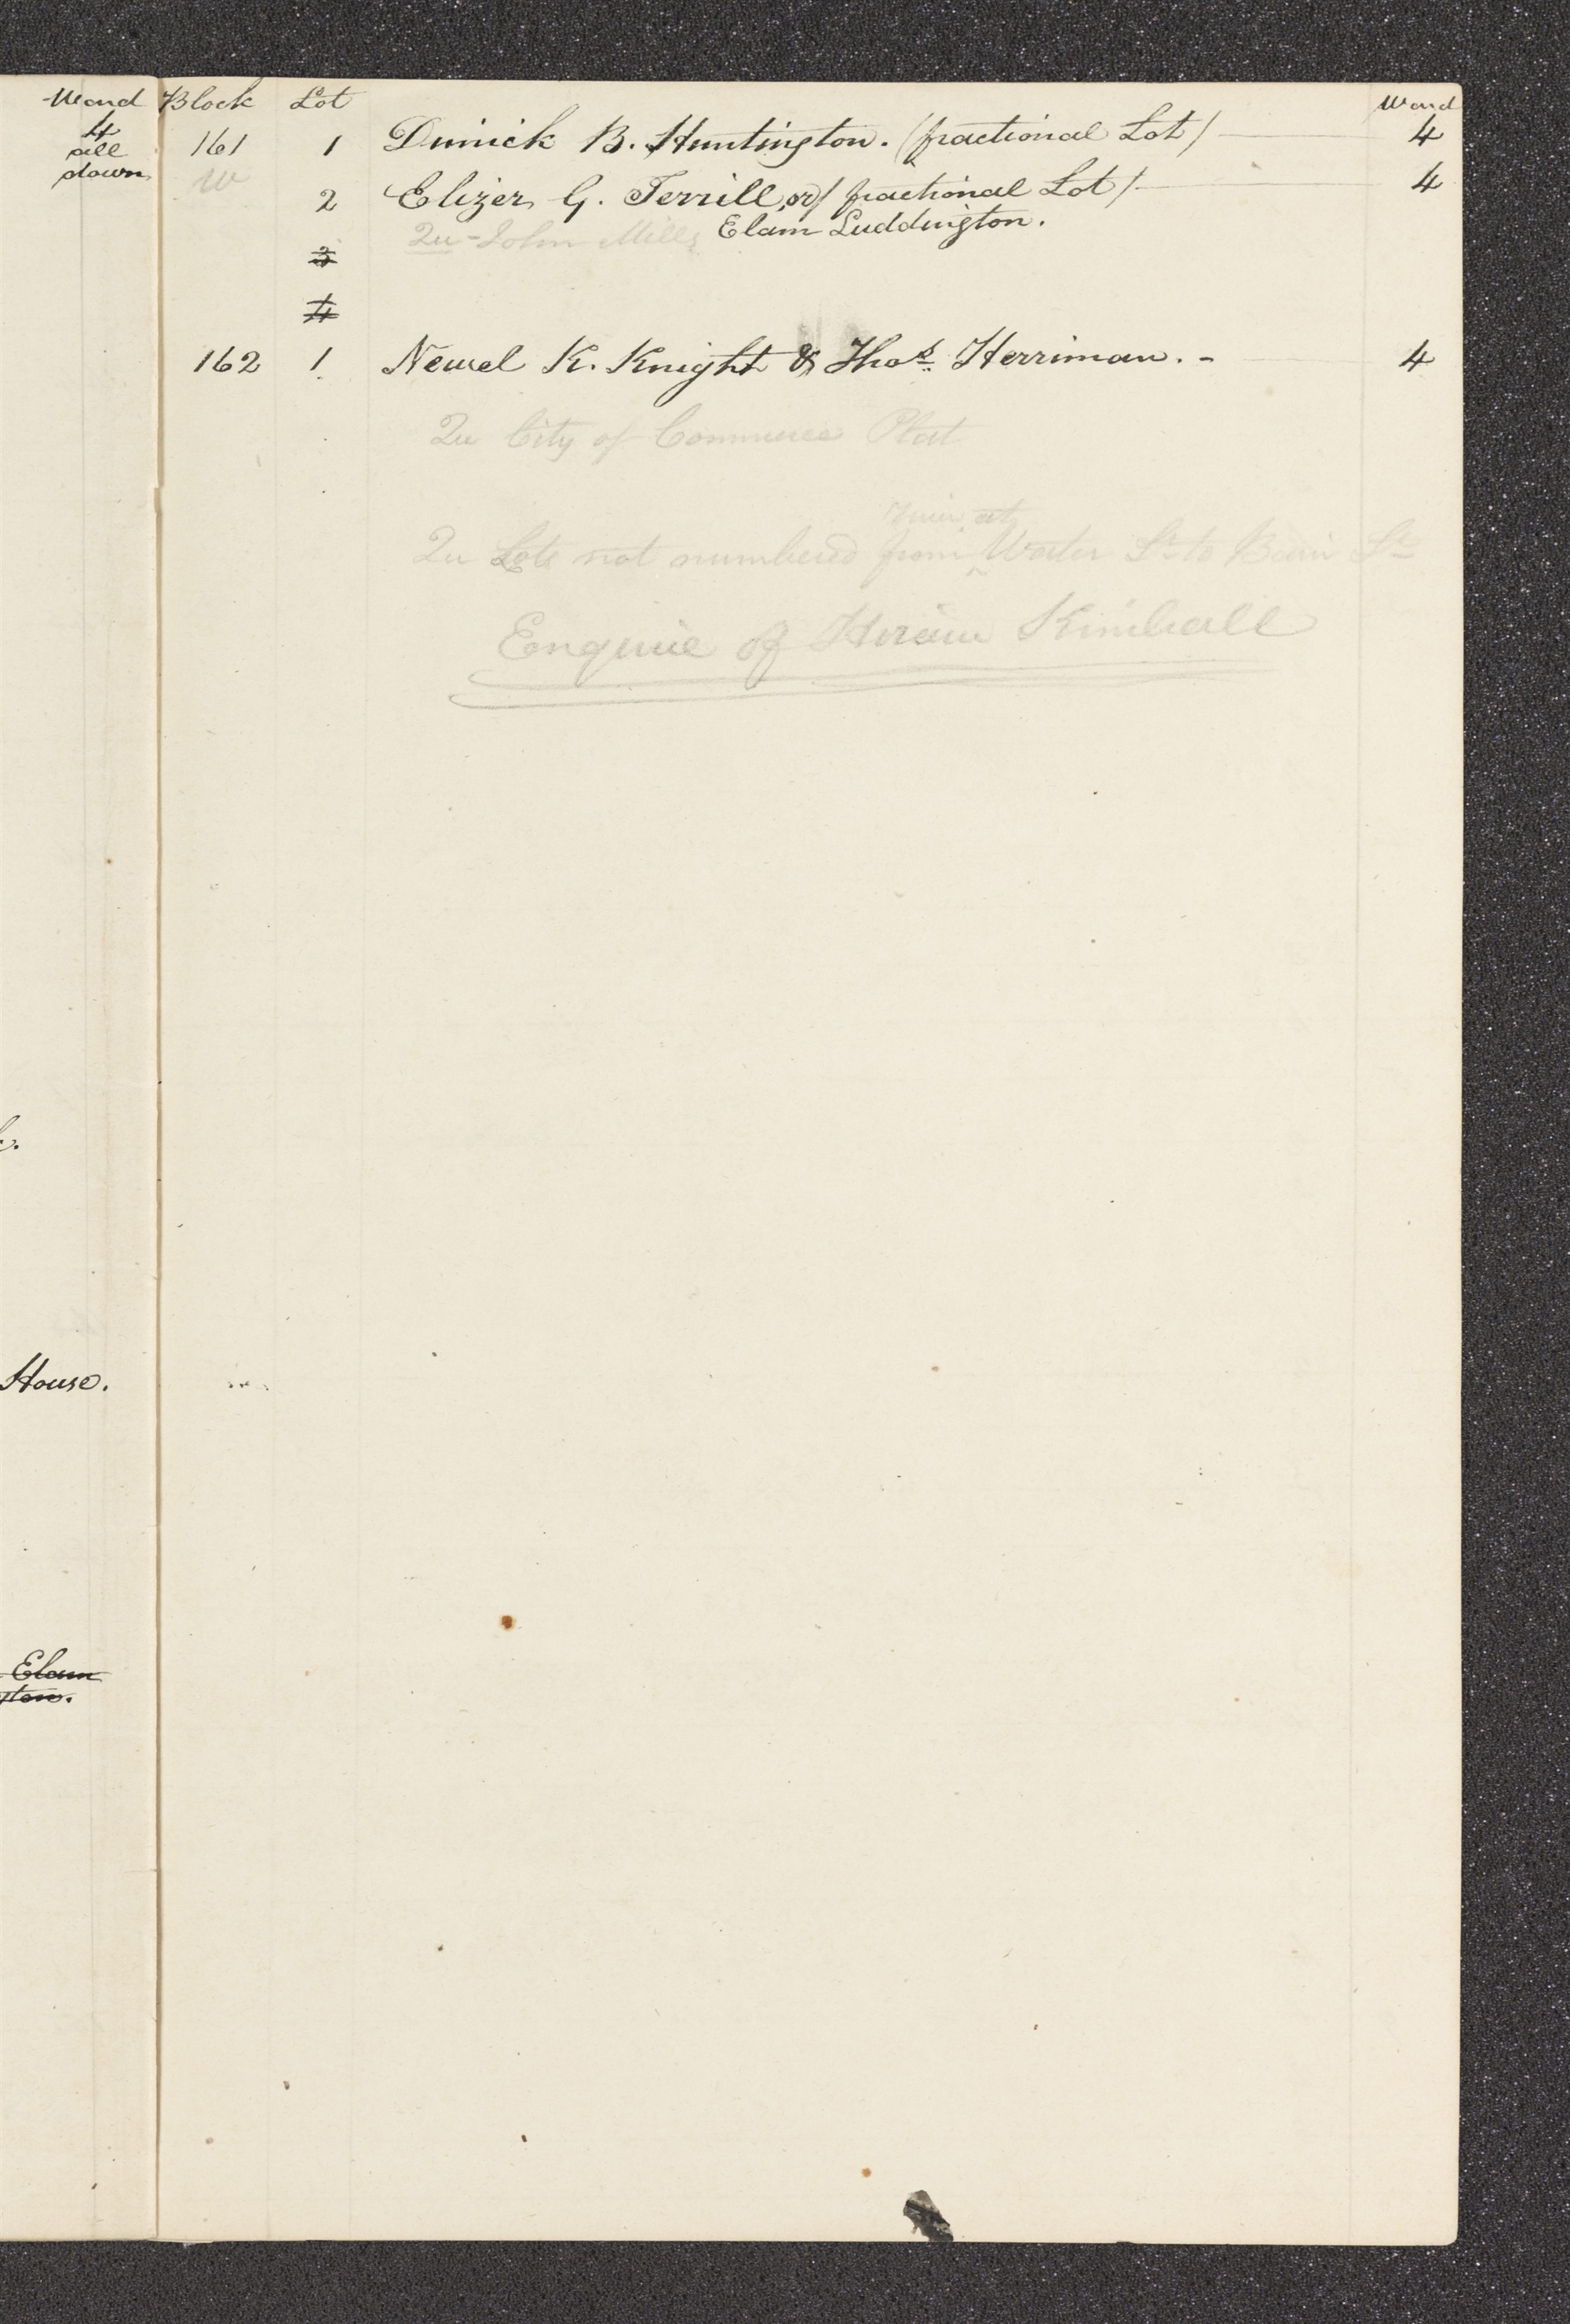 Ward
4
all
down
House.
Elam
Block Lot Ward
161 1 Dimick B. Huntington. (fractional Lot) 4
W
2 Elizer G. Terrill, or (fractional Lot) 4
Qu - John Mills Elam Luddington.
3
4
162 1 Newel K. Knight & Thos. Herriman. - 4
Qu City of Commerce Plat
Qu Lots not numbered from Water St to Bain St
Enquire of Hiram Kimball